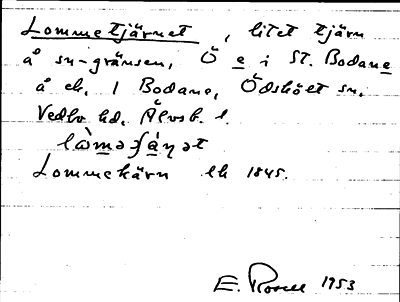 Lommetjärnet, litet tjärn
å sn-gränsen, Ö e i St. Bodane
å ek. 1 Bodane, Ödskölt sn.
Vedbo hd. Älvsb. l.
Lommekärn ek 1845.
E. Rosell 1953